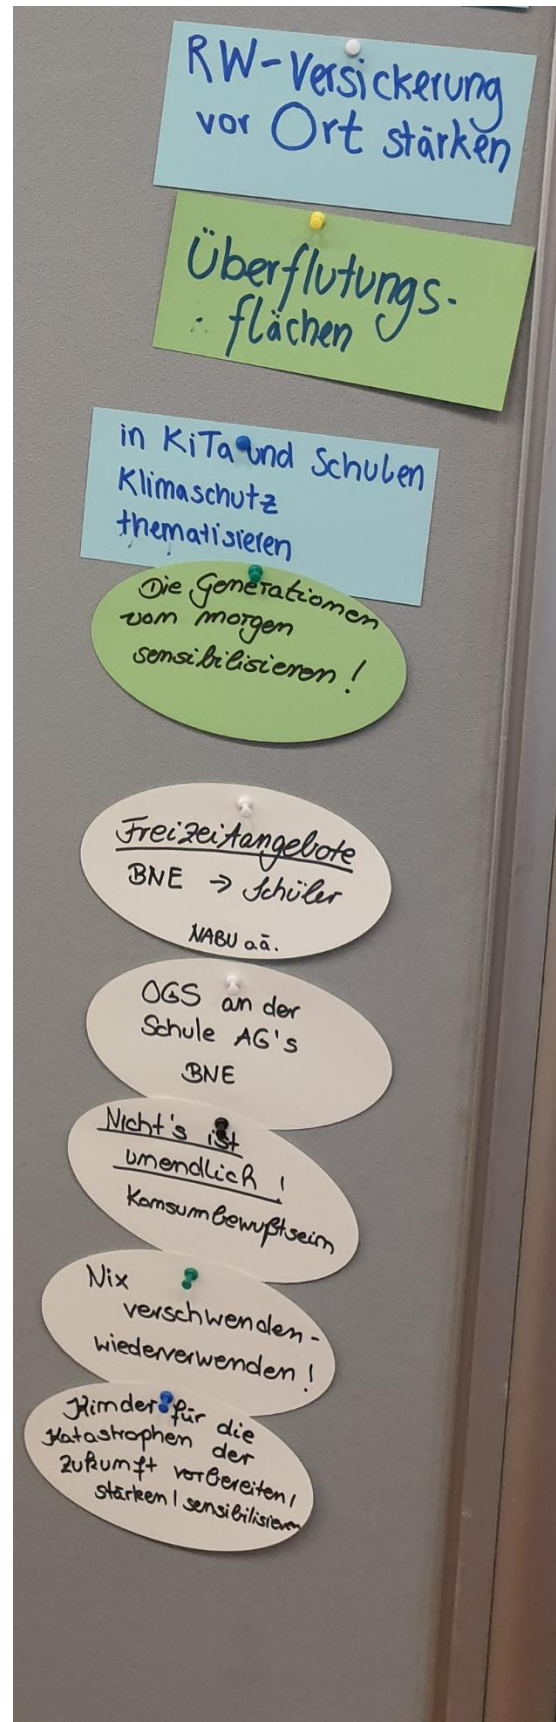 RW-Versickerung
vor Ort stärken
Überflutungs-
flächen
in KiTa und Schulen
Klimaschutz
thematisieren
Die Generationen
vom morgen
sensibilisieren!
Freizeitangebote
BNE → Schüler
NABU a.ä.
OGS an der
Schule AG's
BNE
Nicht's ist
unendlich!
Konsumbewußtsein
Nix
verschwenden-
wiederverwenden!
Kinder für die
Katastrophen der
Zukunft vorbereiten/
stärken/sensibilisieren